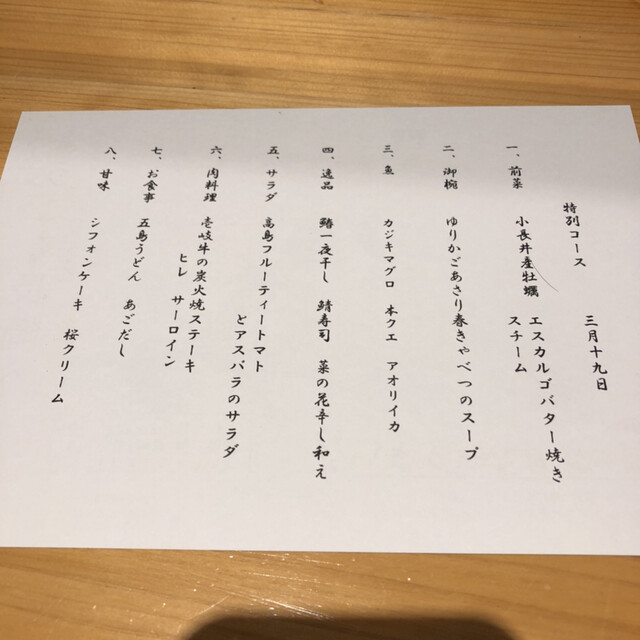 三月十九日
特別コース
一、前菜 小長井産牡蠣 エスカルゴバター焼き
スチーム
二、御椀 ゆりかごあさり春きゃべつのスープ
三、魚 カジキマグロ 本クエ アオリイカ
四、逸品 鰆一夜干し 鯖寿司 菜の花辛し和え
五、サラダ 高島フルーティートマト
とアスパラのサラダ
六、肉料理 壱岐牛の炭火焼ステーキ
ヒレ サーロイン
七、お食事 五島うどん あごだし
八、甘味 シフォンケーキ 桜クリーム